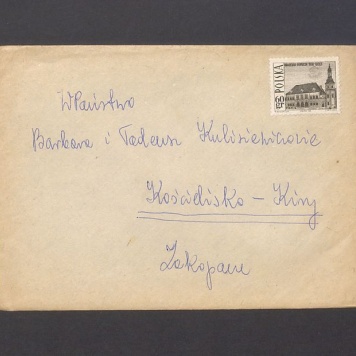 WPaństwo
Barbara i Tadeusz Kulisiewiczowie
Kościelisko - Kiry
Zakopane
POLSKA
60 GR